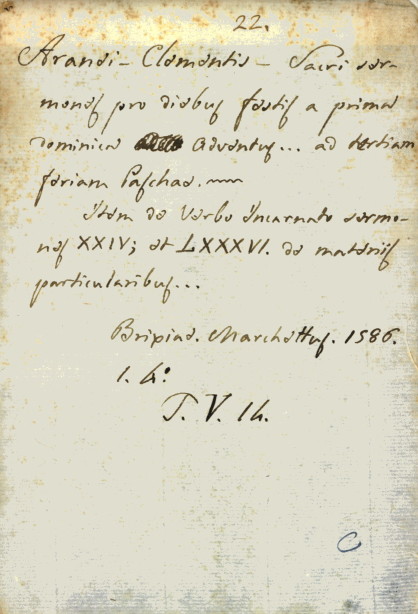 22.
Aranei - Clementis - Sacri ser-
mones pro diebus festis a prima
dominica Adventus... ad tertiam
feriam Paschae.
Item de Verbo Incarnato sermo-
nes XXIV; et LXXXVI. de materiis
particularibus...
Brixiae. Marchettus. 1586.
1. 4°.
T. V. 14.
C